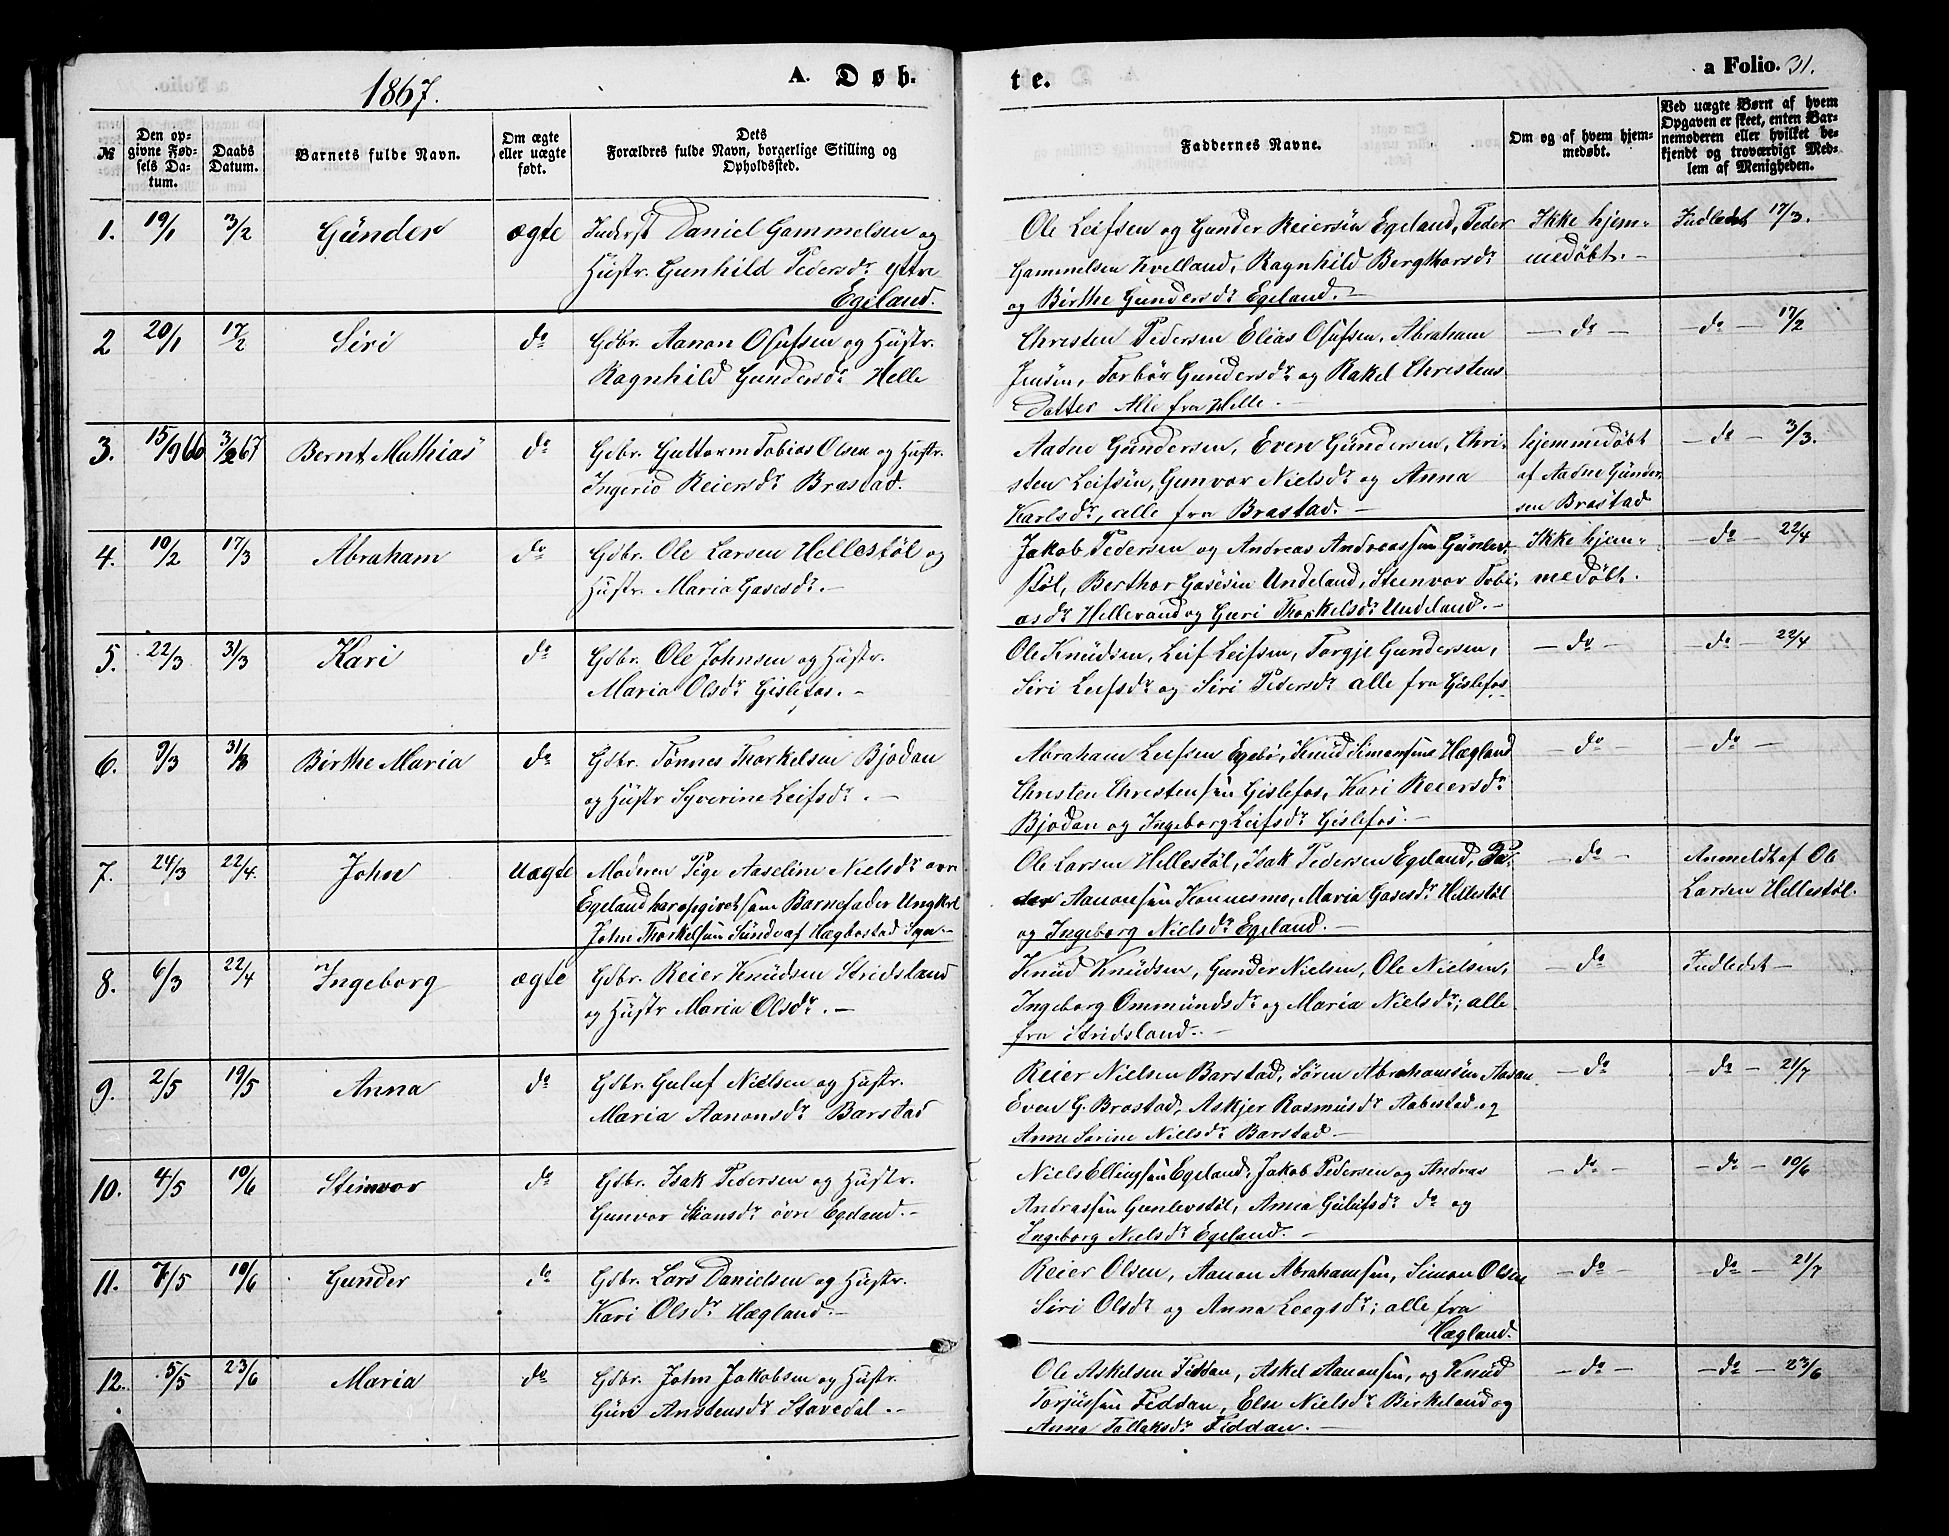 1867.
A. Døb.
te.
a Folio. 31.
№
Den op-
givne Fød-
sels Da-
tum.
Daabs
Datum.
Barnets fulde Navn.
Om ægte
eller uægte
født.
Dets
Forældres fulde Navn, borgerlige Stilling og
Opholdssted.
Faddernes Navne.
Om og af hvem hjem-
medøbt.
Ved uægte Børn af hvem
Opgaven er skeet, enten Bar-
nemoderen eller hvilket be-
kjendt og troværdigt Med-
lem af Menigheden.
1. 19/1 3/2 Gunder ægte Inderst Daniel Gammelsen og
Hustr. Gunhild Pedersdr. Yttre
Egeland.
Ole Leifsen og Gunder Reiersen Egeland, Peder
Gammelsen Kvelland, Ragnhild Bergthorsdr
og Birthe Gundersdr Egeland.-
Ikke hjem-
medøbt.-
Indledet 17/3.
2 20/1 17/2 Siri do Gdbr. Aanon Osufsen og Hustr.
Ragnhild Gundersdr Helle
Christen Pedersen Elias Osufsen, Abraham
Jensen, Torbør Gundersdr og Rakel Christens
datter Alle fra Helle.-
- do -
- do - 17/2
3. 15/9 66 3/2 67 Bernt Mathias do Gdbr. Guttorm Tobias Olsen og Hustr.
Ingerid Reiersdr Brastad.
Aadne Gundersen, Even Gundersen, Chri-
sten Leifsen, Gunvor Nielsdr og Anna
Karlsdr, alle fra Brastad.-
hjemmedøbt
af Aadne Gunder-
sen Brastad
- do - 3/3.
4. 10/2 17/3 Abraham do Gdbr. Ole Larsen Hellestøl og
Hustr. Maria Gasesdr.-
Jakob Pedersen og Andreas Andreassen Gunlev-
støl, Berthor Gasesen Undeland, Steenvor Tobi-
asdr Hellevand og Guri Thorkelsdr Undeland.-
Ikke hjem-
medøbt.
- do - 22/4
5. 22/3 31/3 Kari do Gdbr. Ole Johnsen og Hustr.
Maria Olsdr Gislefos.-
Ole Knudsen, Leif Leifsen, Torgje Gundersen,
Siri Leifsdr og Siri Pedersdr alle fra Gislefos
- do -
- do - 22/4
6. 9/3 31/3 Birthe Maria do Gdbr. Tønnes Thorkelsen Bjodan
og Hustr Syverine Leifsdr.-
Abraham Leifsen Egebø, Knud Simonsen Hægland
Christen Christensen Gislefos, Kari Reiersdr
Bjodan og Ingeborg Leifsdr Gislefos.-
- do -
- do -
7. 24/3 22/4. John Uægte Moderen Pige Aaseline Nielsdr øvre
Egeland har opgivet som Barnefader Ungkrl
John Thorkelsen Sunde af Hægbostad Sgn-
Ole Larsen Hellestøl, Isak Pedersen Egeland, Pe-
der Aanonsen Konnesmo, Maria Gasesdr Hellestøl
og Ingeborg Nielsdr Egeland.-
- do -
Anmeldt af Ole
Larsen Hellestøl.
8. 6/3 22/4 Ingeborg ægte Gdbr. Reier Knudsen Stridsland
og Hustr Maria Olsdr.-
Knud Knudsen, Gunder Nielsen, Ole Nielsen,
Ingeborg Ommundsdr og Maria Nielsdr; alle
fra Stridsland.-
- do
Indledet -
9. 2/5 19/5 Anna do Gdbr. Guluf Nielsen og Hustr.
Maria Aanonsdr Barstad
Reier Nielsen Barstad, Søren Abrahamsen Aasen
Even G. Brastad, Askjer Rasmusdr Aabestad og
Anne Serine Nielsdr Barstad.-
- do -
- do - 21/7
10. 4/5 10/6 Steinvor do Gdbr. Isak Pedersen og Hustr.
Gunvor Stiansdr øvre Egeland.-
Niels Ellingsen Egeland, Jakob Pedersen og Andras
Andrassen Gunlevstøl, Anna Gulufsdr do og
Ingeborg Nielsdr Egeland.-
- do -
- do - 10/6
11. 7/5 10/6 Gunder do Gdbr. Lars Danielsen og Hustr.
Kari Olsdr Hægland.-
Reier Olsen, Aanon Abrahamsen, Simon Olsen
Siri Olsdr og Anna Leegsdr; alle fra
Hægland.
- do -
- do - 21/7
12. 5/5 23/6 Maria do Gdbr. John Jakobsen og Hustr.
Guri Anstensdr Stavedal.-
Ole Askelsen Fiddan, Askel Aanonsen, og Knud
Torjussen Fiddan, Else Nielsdr Birkeland og
Anna Tallaksdr Fiddan.-
- do -
- do - 23/6